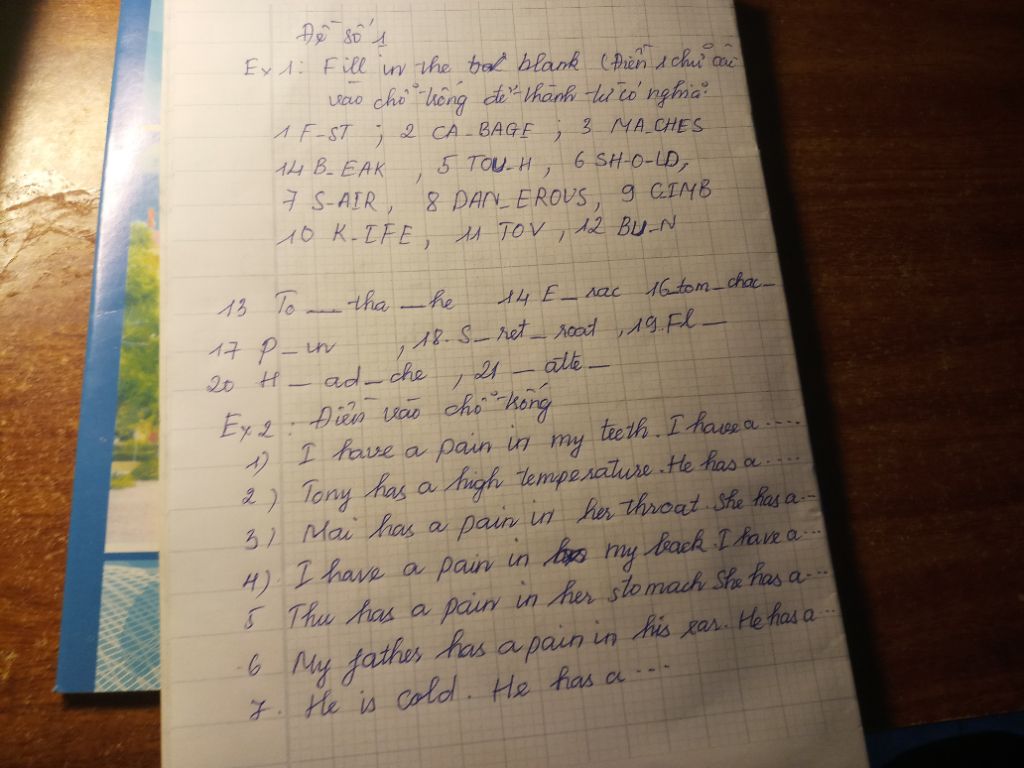 Đề số 1
Ex 1: Fill in the blank (Điền 1 chữ cái
vào chỗ trống để thành từ có nghĩa:
1 F-ST ; 2 CA_BAGE ; 3 MA_CHES
14 B_EAK , 5 TOU_H , 6 SH-O-LD,
7 S-AIR , 8 DAN_EROUS, 9 CIMB
10 K_IFE, 11 TOV , 12 BU_N
13 To __ tha _he 14 E _ rac 16 _tom_chac_
17 P _ in , 18. S_ret_roat , 19. Fl _
20 H _ ad _ che , 21 _ atte _
Ex 2 : Điền vào chỗ trống
1) I have a pain in my teeth. I have a ....
2) Tony has a high temperature. He has a ....
3) Mai has a pain in her throat. She has a ...
4) I have a pain in my back. I have a ...
5 Thu has a pain in her stomach She has a ...
6 My father has a pain in his ear. He has a ...
7. He is cold. He has a ....